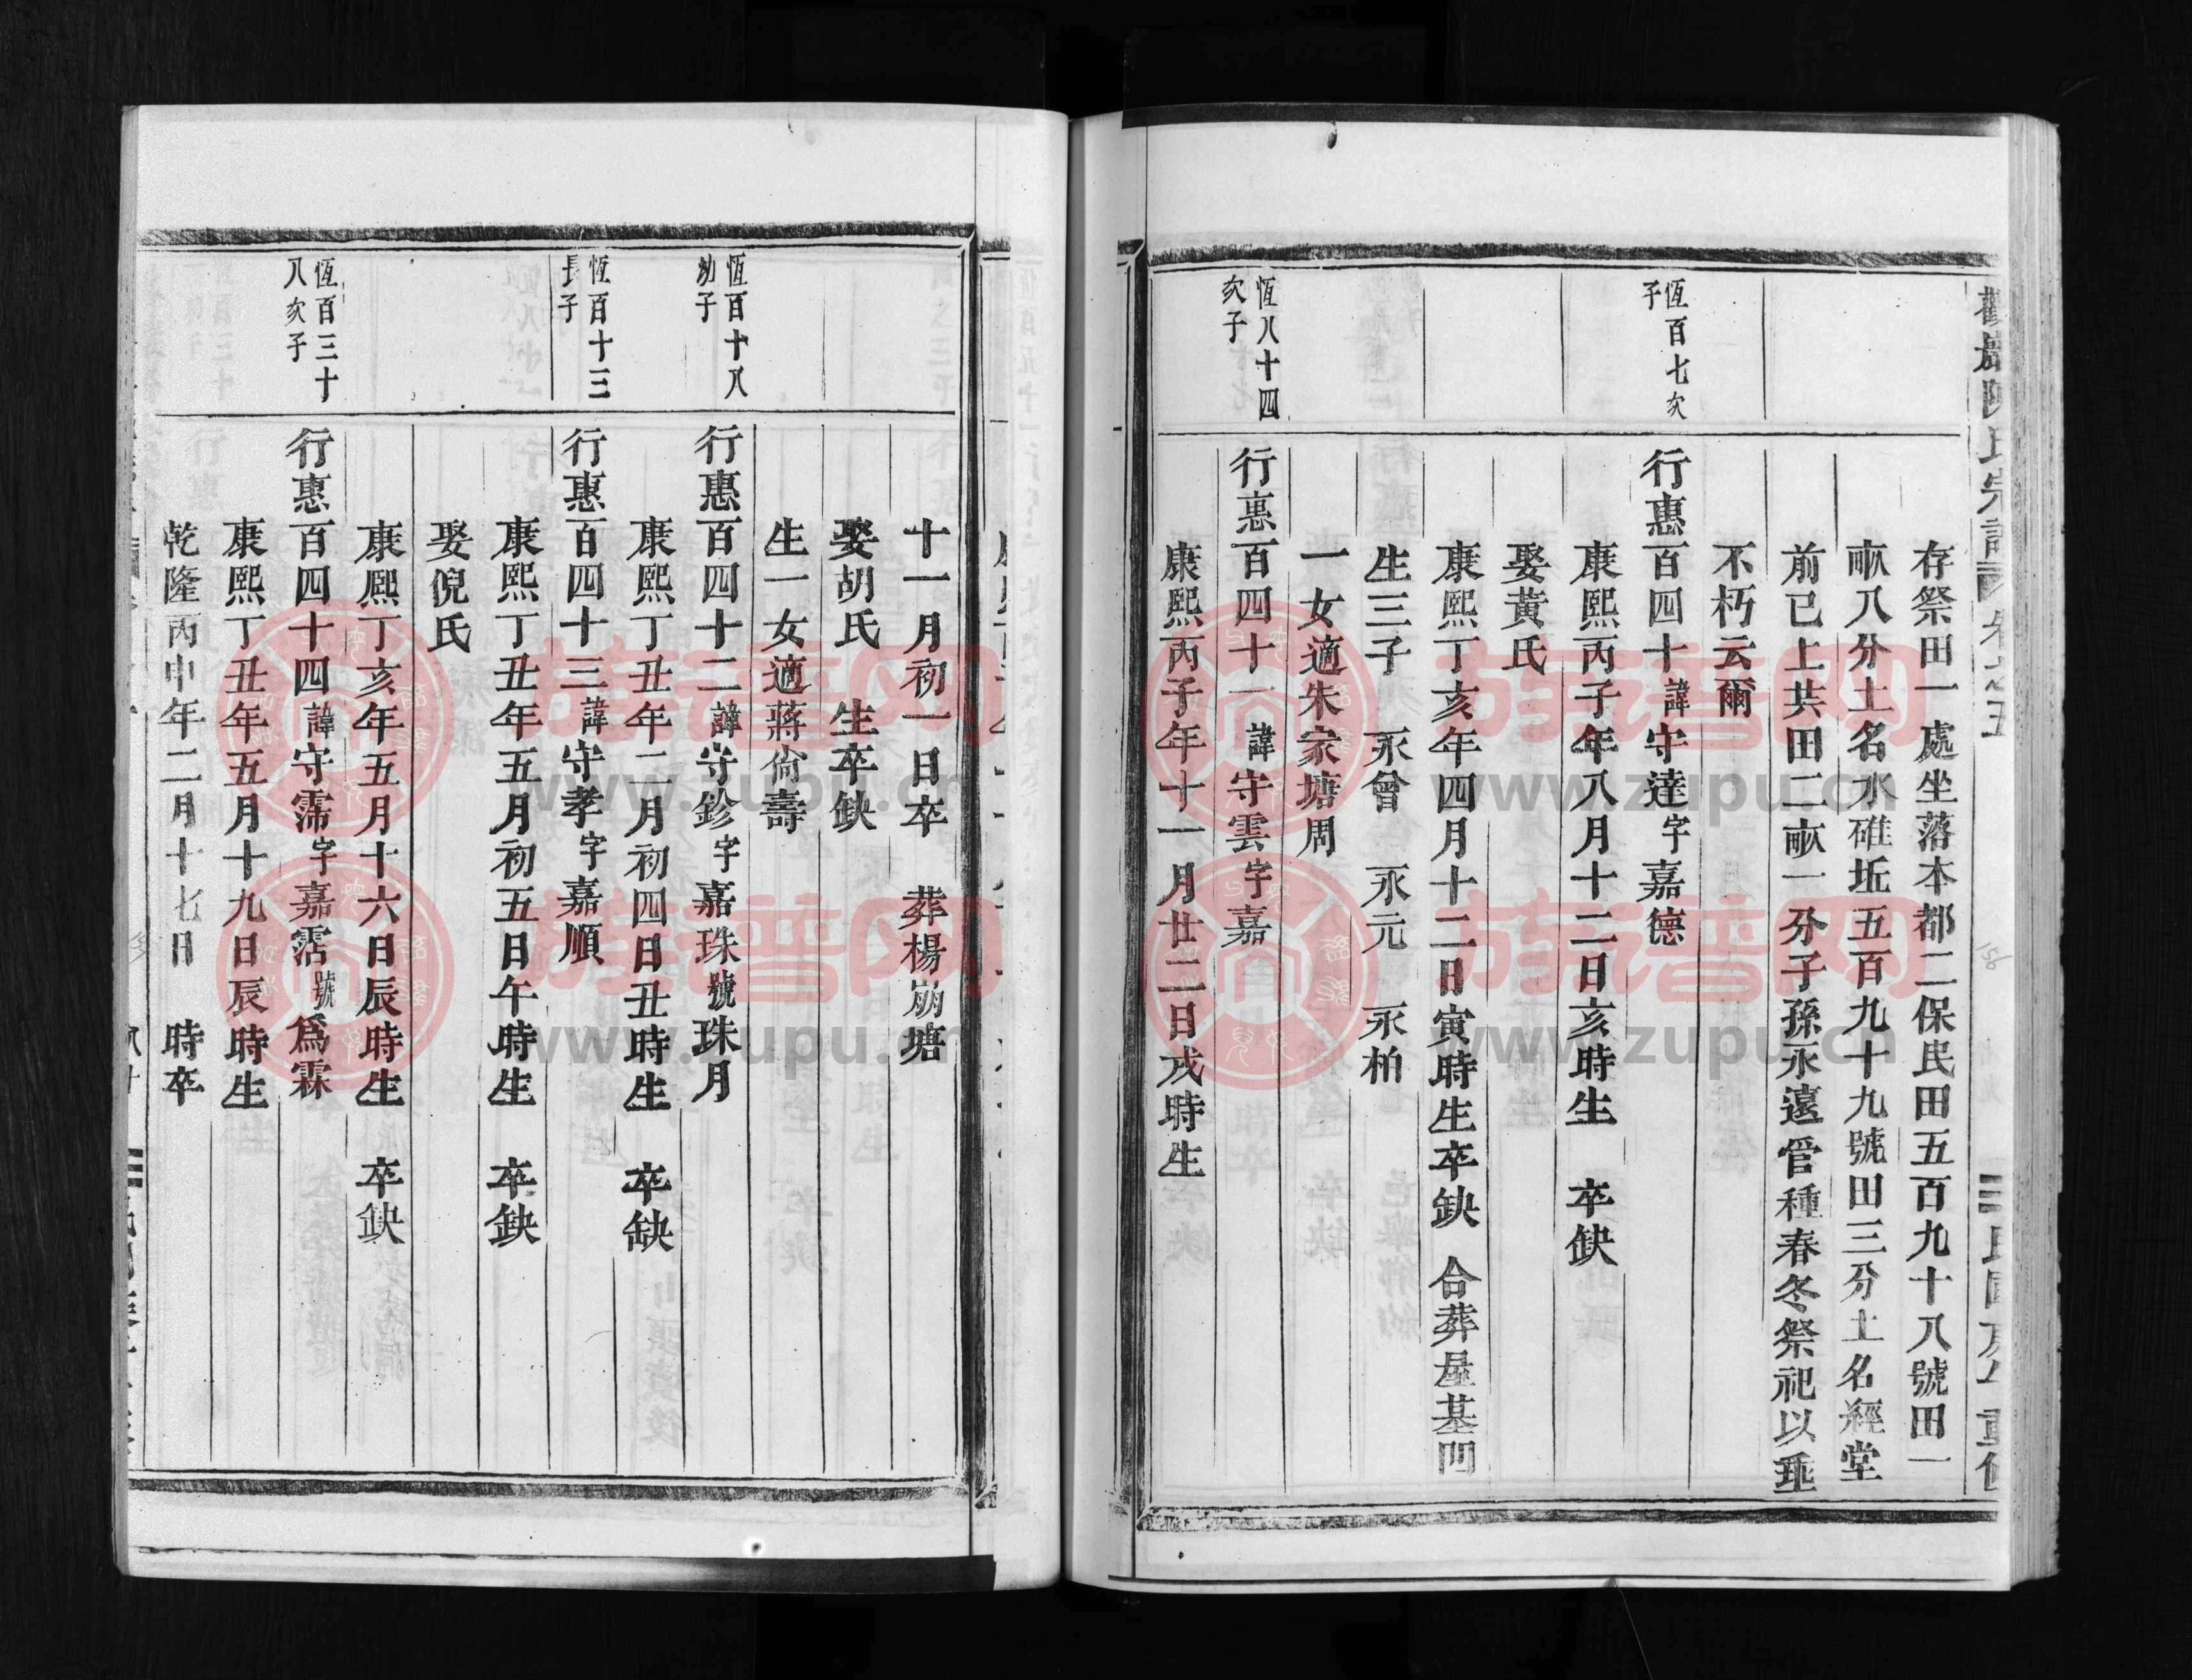 陳氏宗譜 卷之五
存祭田一處坐落本都二保民田五百九十八號田一
畝八分土名水碓坵五百九十九號田三分土名經堂
前已上共田二畝一分子孫永遠管種春冬祭祀以垂
不朽云爾
恆百七次子
行惠百四十諱守達字嘉德
康熙丙子年八月十二日亥時生 卒缺
娶黃氏
康熙丁亥年四月十二日寅時生卒缺 合葬屋基凹
生三子 永曾 永元 永柏
一女適朱家塘周
恆八十四次子
行惠百四十一諱守雲字嘉
康熙丙子年十一月廿二日戌時生
十一月初一日卒 葬楊崩塘
娶胡氏 生卒缺
生一女適蔣尙壽
恆百十八幼子
行惠百四十二諱守鉁字嘉珠號珠月
康熙丁丑年二月初四日丑時生 卒缺
恆百十三長子
行惠百四十三諱守孝字嘉順
康熙丁丑年五月初五日午時生 卒缺
娶倪氏
康熙丁亥年五月十六日辰時生 卒缺
恆百三十八次子
行惠百四十四諱守霈字嘉霑號爲霖
康熙丁丑年五月十九日辰時生
乾隆丙申年二月十七日 時卒
族譜网
www.zupu.cn
族譜网
www.zupu.cn
族譜网
www.zupu.cn
族譜网
www.zupu.cn